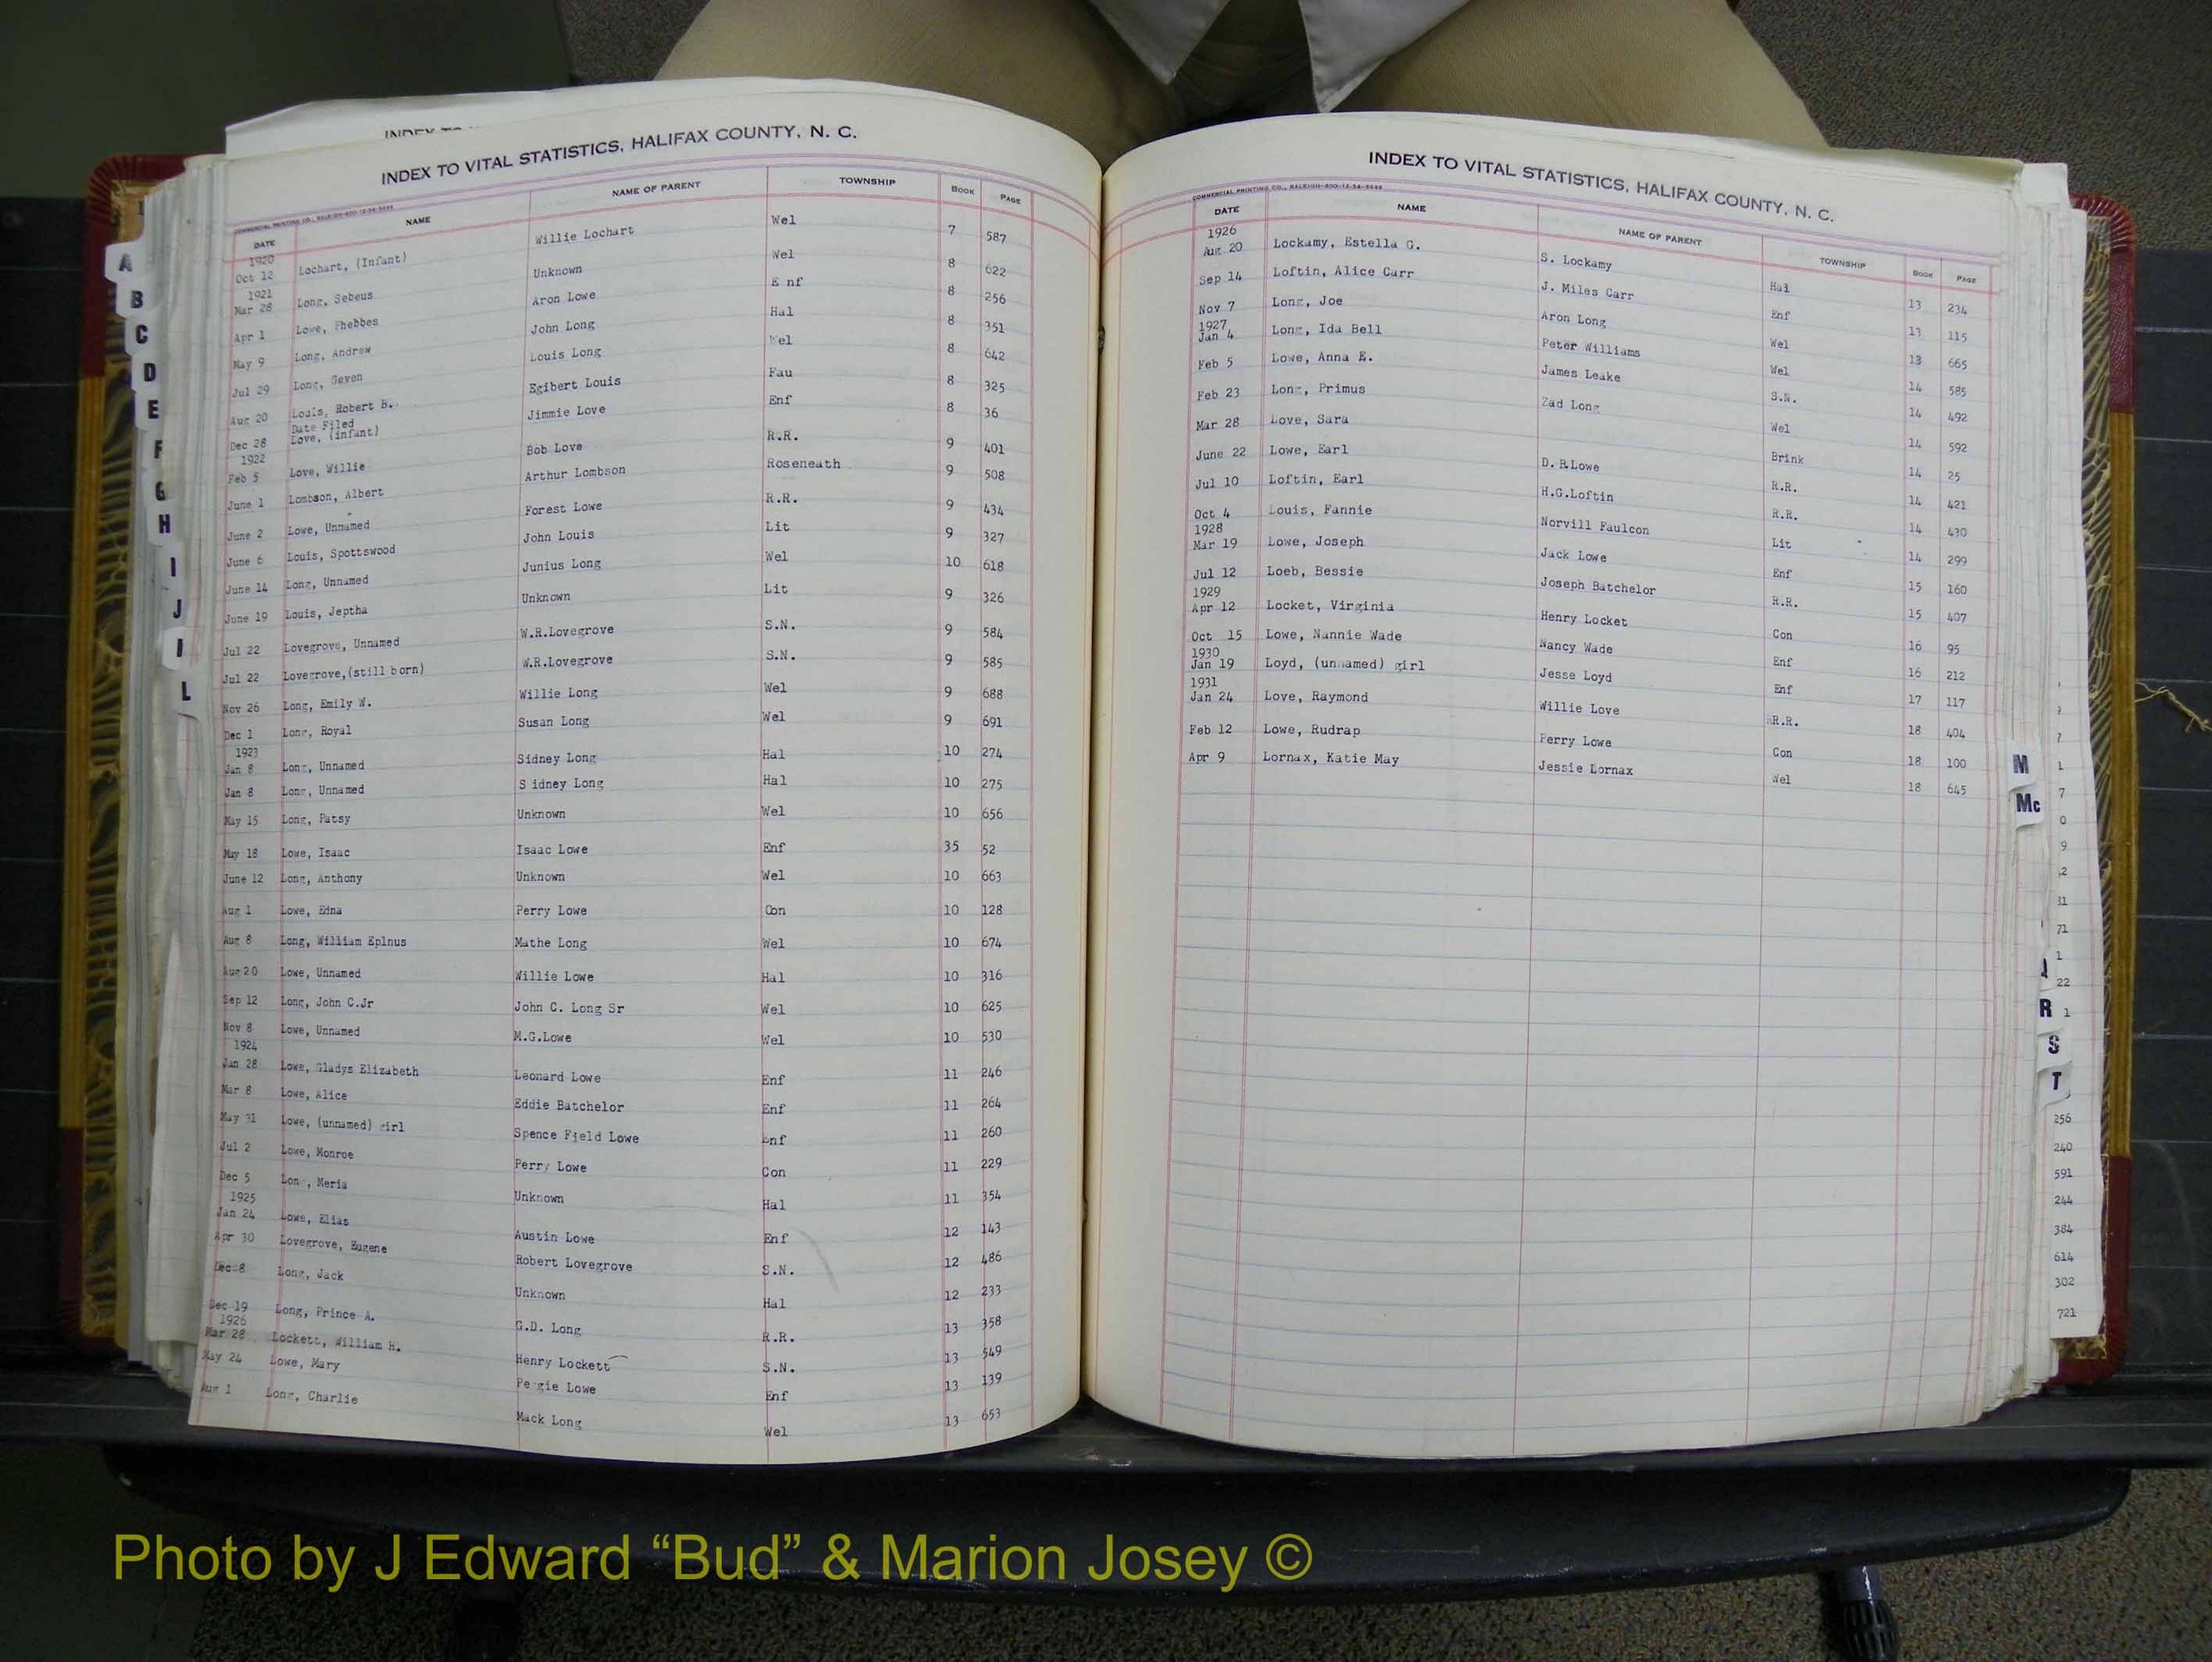 INDEX TO VITAL STATISTICS, HALIFAX COUNTY, N. C.
COMMERCIAL PRINTING CO., RALEIGH
DATE NAME NAME OF PARENT TOWNSHIP BOOK PAGE
1920
Oct 12 Lochart, (Infant) Willie Lochart Wel 7 587
1921
Mar 28 Long, Sebeus Unknown Wel 8 622
Apr 1 Lowe, Phebbes Aron Lowe E nf 8 256
May 9 Long, Andrew John Long Hal 8 351
Jul 29 Long, Geven Louis Long Wel 8 642
Aug 20 Louis, Robert B. Egibert Louis Fau 8 325
Date Filed
Dec 28 Love, (infant) Jimmie Love Enf 8 36
1922
Feb 5 Love, Willie Bob Love R.R. 9 401
June 1 Lombson, Albert Arthur Lombson Roseneath 9 508
June 2 Lowe, Unnamed Forest Lowe R.R. 9 434
June 6 Louis, Spottswood John Louis Lit 9 327
June 14 Long, Unnamed Junius Long Wel 10 618
June 19 Louis, Jeptha Unknown Lit 9 326
Jul 22 Lovegrove, Unnamed W.R.Lovegrove S.N. 9 584
Jul 22 Lovegrove,(still born) W.R.Lovegrove S.N. 9 585
Nov 26 Long, Emily W. Willie Long Wel 9 688
Dec 1 Long, Royal Susan Long Wel 9 691
1923
Jan 8 Long, Unnamed Sidney Long Hal 10 274
Jan 8 Long, Unnamed S idney Long Hal 10 275
May 15 Long, Patsy Unknown Wel 10 656
May 18 Lowe, Isaac Isaac Lowe Enf 35 52
June 12 Long, Anthony Unknown Wel 10 663
Aug 1 Lowe, Edna Perry Lowe Con 10 128
Aug 8 Long, William Eplnus Mathe Long Wel 10 674
Aug 20 Lowe, Unnamed Willie Lowe Hal 10 316
Sep 12 Long, John C.Jr John C. Long Sr Wel 10 625
Nov 8 Lowe, Unnamed M.G.Lowe Wel 10 530
1924
Jan 28 Lowe, Gladys Elizabeth Leonard Lowe Enf 11 246
Mar 8 Lowe, Alice Eddie Batchelor Enf 11 264
May 31 Lowe, (unnamed) girl Spence Field Lowe Enf 11 260
Jul 2 Lowe, Monroe Perry Lowe Con 11 229
Dec 5 Lon , Meria Unknown Hal 11 354
1925
Jan 24 Lowe, Elias Austin Lowe Enf 12 143
Apr 30 Lovegrove, Eugene Robert Lovegrove S.N. 12 486
Dec 8 Long, Jack Unknown Hal 12 233
Dec 19 Long, Prince A. G.D. Long R.R. 13 358
1926
Mar 28 Lockett, William H. Henry Lockett S.N. 13 549
May 24 Lowe, Mary Lowe Enf 13 139
Aug 1 Long, Charlie Mack Long Wel 13 653
INDEX TO VITAL STATISTICS, HALIFAX COUNTY, N. C.
COMMERCIAL PRINTING CO., RALEIGH
DATE NAME NAME OF PARENT TOWNSHIP BOOK PAGE
1926
Aug 20 Lockamy, Estella G. S. Lockamy Hal 13 234
Sep 14 Loftin, Alice Carr J. Miles Carr Enf 13 115
Nov 7 Long, Joe Aron Long Wel 13 665
1927
Jan 4 Long, Ida Bell Peter Williams Wel 14 585
Feb 5 Lowe, Anna E. James Leake S.N. 14 492
Feb 23 Long, Primus Zad Long Wel 14 592
Mar 28 Love, Sara Brink 14 25
June 22 Lowe, Earl D.R.Lowe R.R. 14 421
Jul 10 Loftin, Earl H.G.Loftin R.R. 14 430
Oct 4 Louis, Fannie Norvill Faulcon Lit 14 299
1928
Mar 19 Lowe, Joseph Jack Lowe Enf 15 160
Jul 12 Loeb, Bessie Joseph Batchelor R.R. 15 407
1929
Apr 12 Locket, Virginia Henry Locket Con 16 95
Oct 15 Lowe, Nannie Wade Nancy Wade Enf 16 212
1930
Jan 19 Loyd, (unnamed) girl Jesse Loyd Enf 17 117
1931
Jan 24 Love, Raymond Willie Love R.R. 18 404
Feb 12 Lowe, Rudrap Perry Lowe Con 18 100
Apr 9 Lornax, Katie May Jessie Lornax Wel 18 645
A
B
C
D
E
F
G
H
I
J
L
M
Mc
R
S
T
22
256
240
591
244
384
614
302
721
Photo by J Edward “Bud” & Marion Josey ©